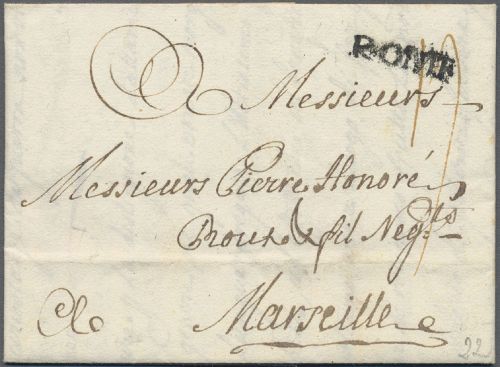 ROME
A Messieurs
Messieurs Pierre Honoré
Roux & fil Neg.ts
A Marseille
22